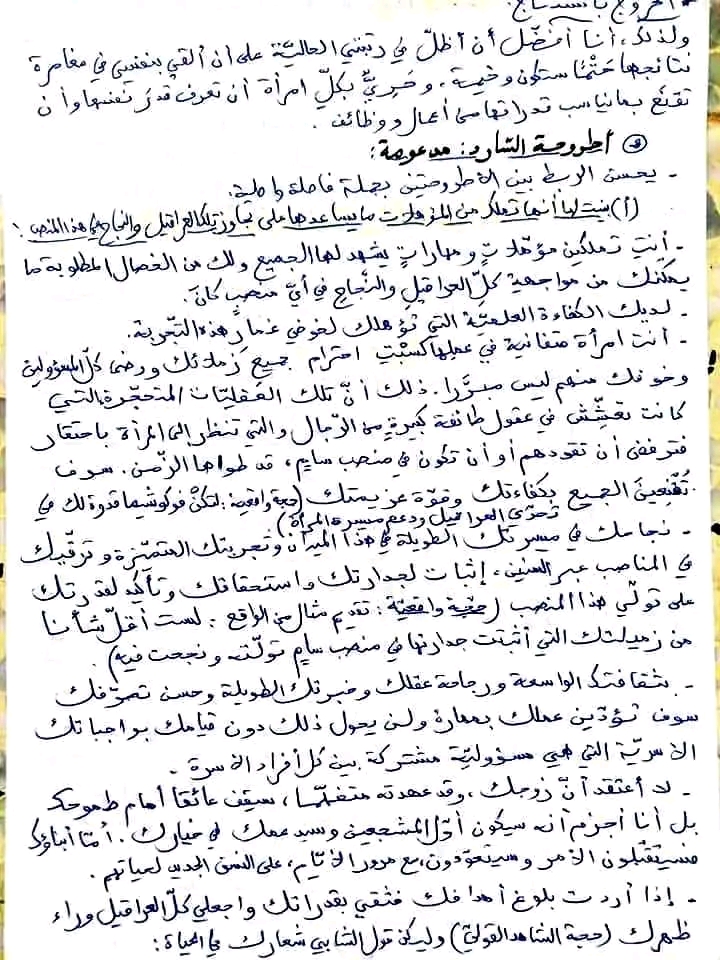 ولذلك، أنا أفضّل أن أظلّ في رتبتي الحاليّة على أن ألقي بنفسي في مغامرة
نتائجها حتما ستكون وخيمة. وحريّ بكلّ امرأة أن تعرف قدر نفسها وأن
تقنع بما يناسب قدراتها من أعمال ووظائف.
أطروحة السّارد: مدعومة:
- يحسن الربط بين الأطروحتين بجملة فاصلة واصلة.
(أ) بيّنت لها أنها تملك من المؤهلات ما يساعدها على تجاوز تلك العراقيل والنجاح في هذا المنصب:
- أنتِ تملكين مؤهّلاتٍ ومهاراتٍ يشهد لها الجميع ولك من الخصال المطلوبة ما
يمكّنك من مواجهة كلّ العراقيل والنّجاح في أيّ منصبٍ كان.
- لديك الكفاءة العلميّة التي تؤهلك لخوض غمار هذه التّجربة.
- أنت امرأة متفانية في عملها كسبْتِ احترام جميع زملائك ورضى كلّ المسؤولين
وخوفك منهم ليس مبرّرا. ذلك أنّ تلك العقليّات المتحجّرة التي
كانت تعشّش في عقول طائفة كبيرة من الرّجال والتي تنظر إلى المرأة باحتقار
فترفض أن تقودهم أو أن تكون في منصب سام، قد طواها الزّمن. سوف
تُقنعين الجميع بكفاءتك وقوّة عزيمتك (حجة واقعية: لتكنْ فوكوشيما قدوة لك في
تحدّي العراقيل ودعم مسيرة المرأة)
- نجاحك في مسيرتك الطويلة في هذا الميدان وتجربتك المتميّزة وترقّيك
في المناصب عبر السنين، إثبات لجدارتك واستحقاقك وتأكيد لقدرتك
على تولّي هذا المنصب (حجّة واقعيّة: تقديم مثال من الواقع: لست أقلّ شأنا
من زميلتك التي أثبتت جدارتها في منصب سامٍ تولّته ونجحت فيه).
- بثقافتك الواسعة ورجاحة عقلك وخبرتك الطويلة وحسن تصرّفك
سوف تؤدّين عملك بمهارة ولن يحول ذلك دون قيامك بواجباتك
الأسريّة التي هي مسؤوليّة مشتركة بين كل أفراد الأسرة.
- لا أعتقد أنّ زوجك، وقد عهدته متفهّما، سيقف عائقا أمام طموحك
بل أنا أجزم أنه سيكون أوّل المشجعين وسيدعمك في خيارك. أمّا أبناؤك
فسيتقبّلون الأمر وسيتعوّدون، مع مرور الأيّام، على النسق الجديد لحياتهم.
- إذا أردت بلوغ أهدافك فثقي بقدراتك واجعلي كلّ العراقيل وراء
ظهرك (حجة الشاهد القوليّ) وليكن قول الشابي شعارك في الحياة: